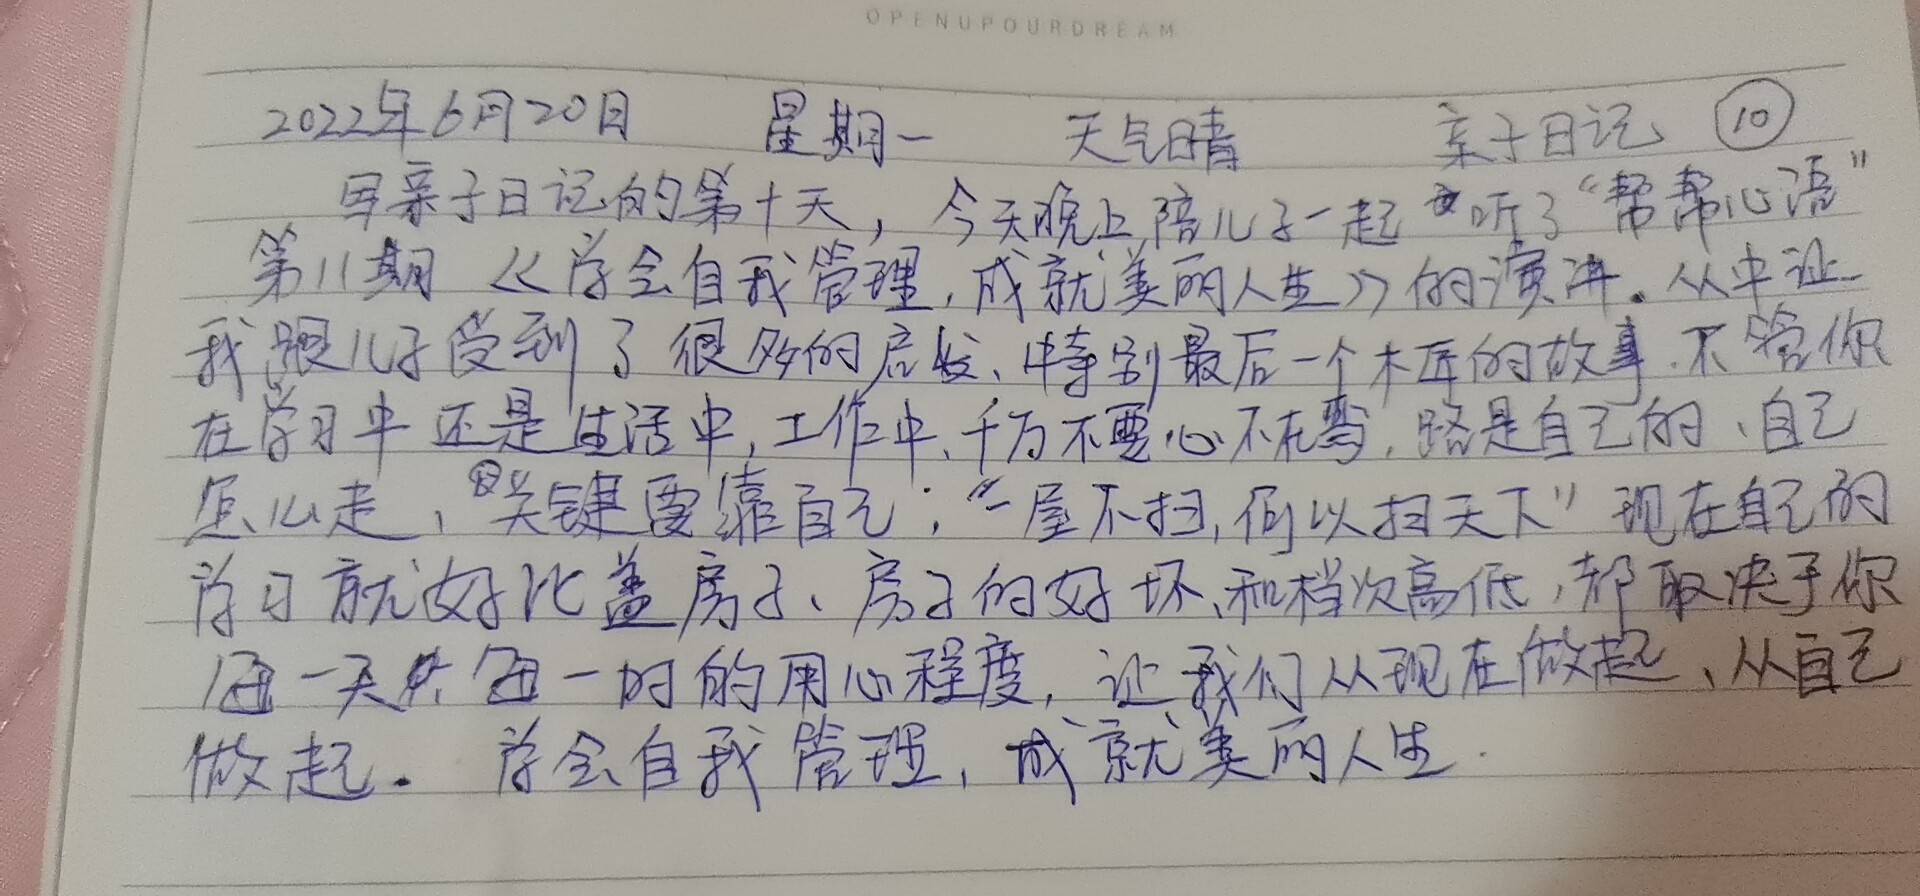 OPENUPOURDREAM
2022年6月20日 星期一 天气晴 亲子日记 ⑩
写亲子日记的第十天，今天晚上陪儿子一起听了“帮帮心语”
第11期《学会自我管理，成就美丽人生》的演讲。从中让
我跟儿子受到了很多的启发、特别最后一个木匠的故事.不管你
在学习中还是生活中,工作中、千万不要心不在焉,路是自己的、自己
怎么走，关键要靠自己；“一屋不扫,何以扫天下”现在自己的
学习就好比盖房子、房子的好坏、和档次高低,都取决于你
每一天每一时的用心程度,让我们从现在做起、从自己
做起。学会自我管理,成就美丽人生.